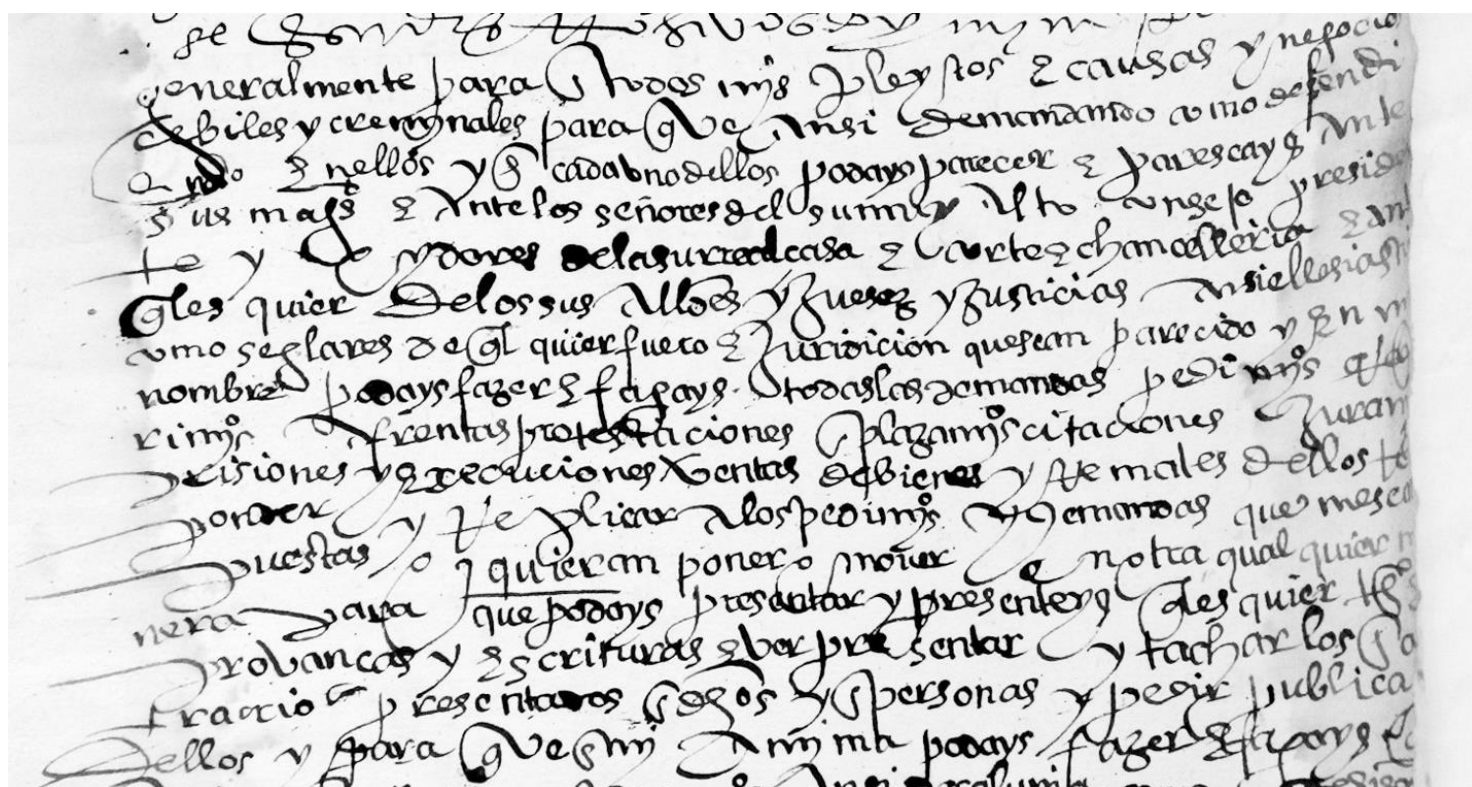 generalmente para en todos mys pleytos e causas y negocio
cebiles y cremynales para que ansi demandando como defendi
endo en ellos y en cada bno dellos podays parecer e parescays ante
sus mags e ante los señores del su muy alto consejo preside
te y oydores de la su rreal casa e corte e chancelleria e an
qles quier de los sus allds y juezes y justicias ansi eclesiasti
como seglares de ql quier fuero e juridicion que sean parecido y en m
nombre podays fazer e fagays todas las demandas pedimyos rreque
rimyos afrentas protestaciones enplazamyos citaciones juram
prisiones y execuciones ventas de bienes y rremates dellos
poner y rreplicar a los pedimyos y demandas que me sea
puestas o quieran poner o mober en otra qual quier m
nera para que podays presentar y presenteys qles quier tos
provanças y escrituras e ver presentar y tachar los
trario presentados en dhos y en personas y pedir publica
dellos y para que en mi anima podays fazer e fagays